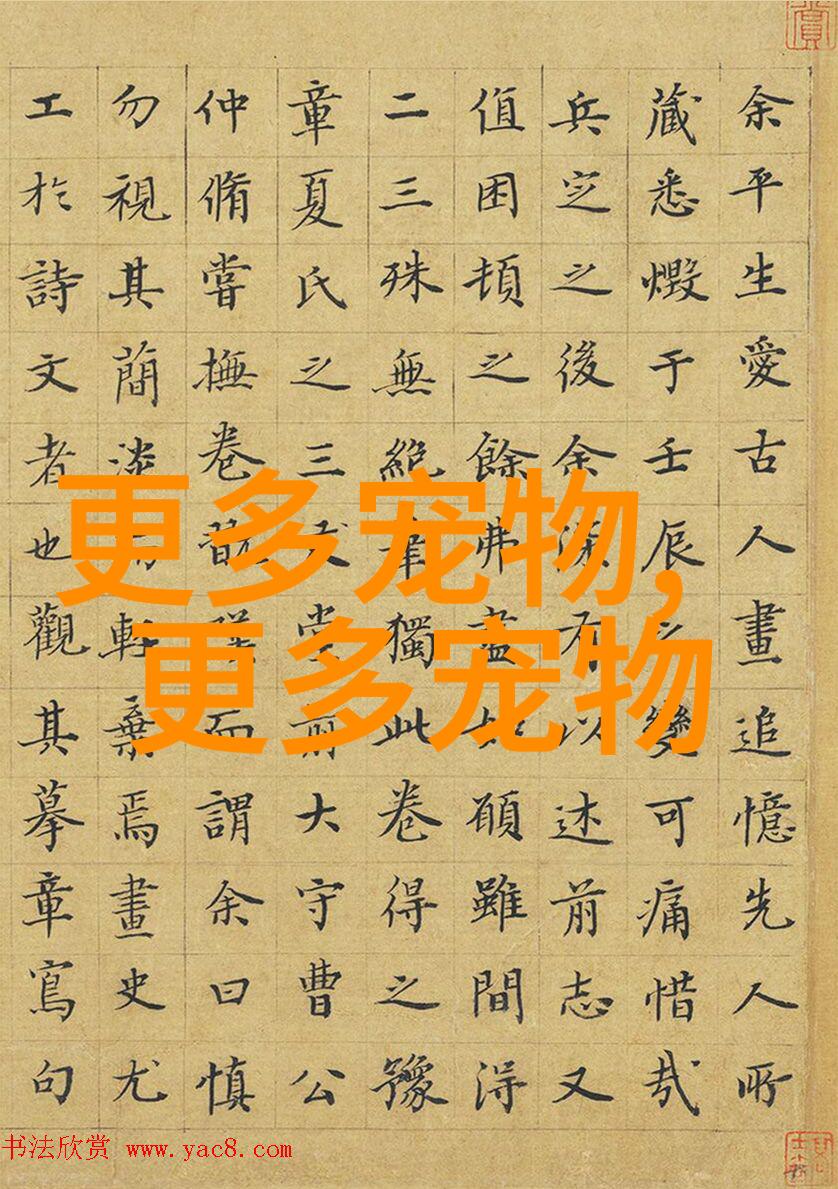 余平生愛古人畫追憶先人所
藏悉燬于壬辰之變可痛惜哉
兵定之後余深有以述前志又
值困頓之餘弗盡如願雖間得
二三殊無絕獨此卷得之豫
章夏氏之三友堂前大守曹公
仲脩嘗撫卷而謂余曰慎
勿視其簡淡而輕棄焉畫史尤
工於詩文者也觀其摹章寫句
更多宠物，
更多宠物
书法欣赏 www.yac8.com